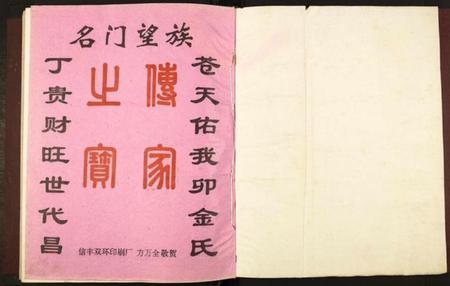 名门望族
苍天佑我卯金氏
傳家
之寶
丁贵财旺世代昌
信丰双环印刷厂 方万全敬贺